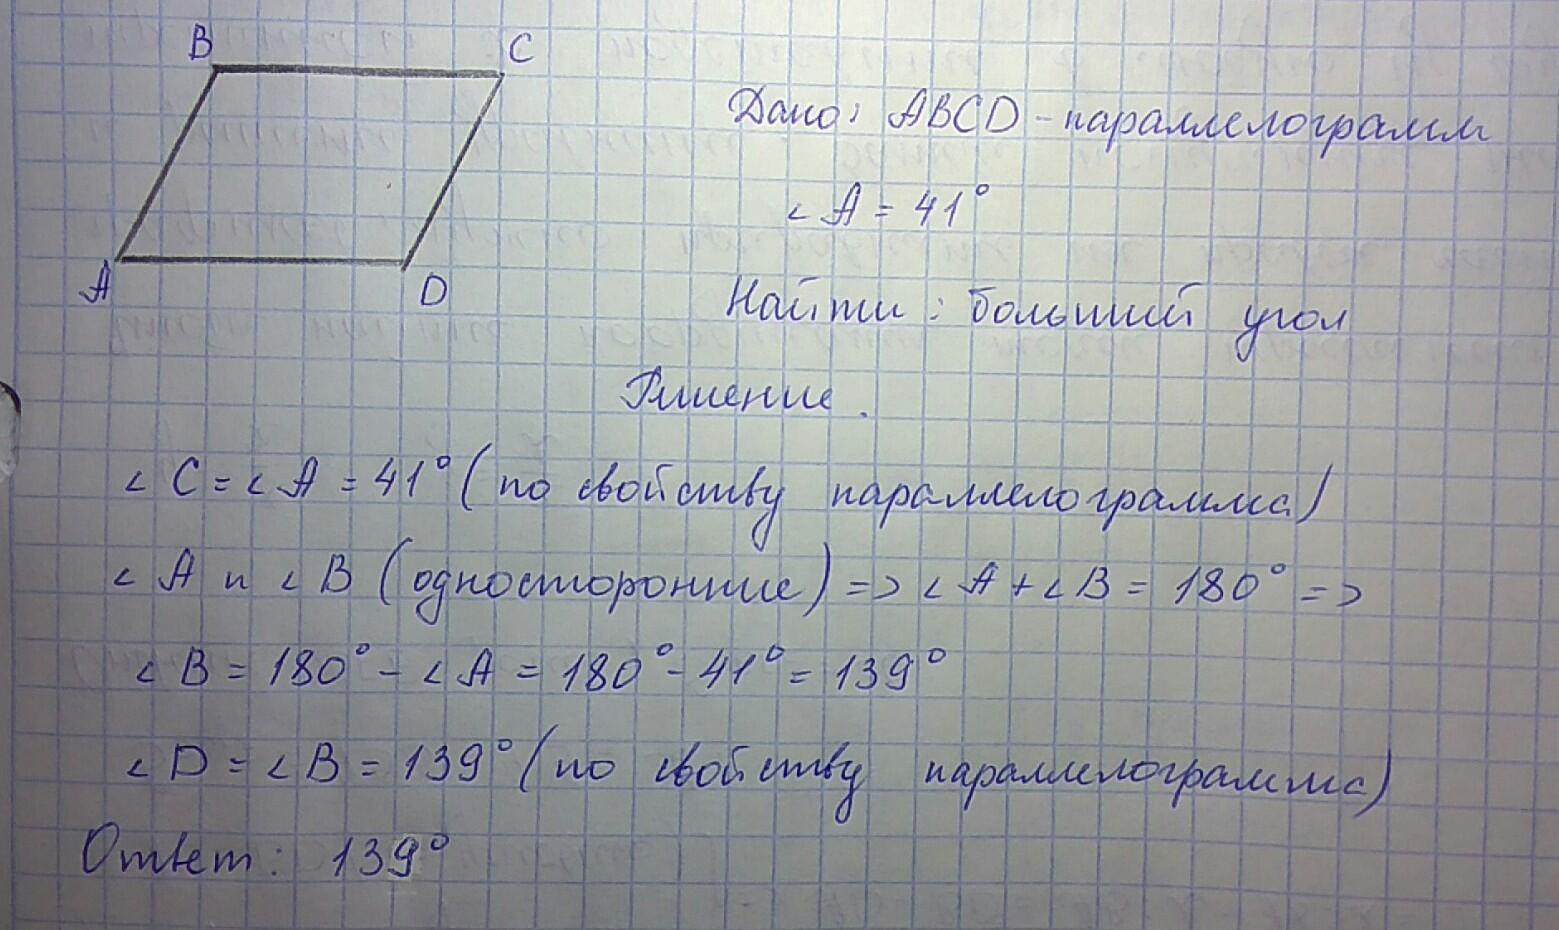 B C
Дано: ABCD - параллелограмм
∠A = 41°
A D
Найти: больший угол
Решение.
∠C = ∠A = 41° (по свойству параллелограмма)
∠A и ∠B (односторонние) => ∠A + ∠B = 180° =>
∠B = 180° - ∠A = 180° - 41° = 139°
∠D = ∠B = 139° (по свойству параллелограмма)
Ответ: 139°